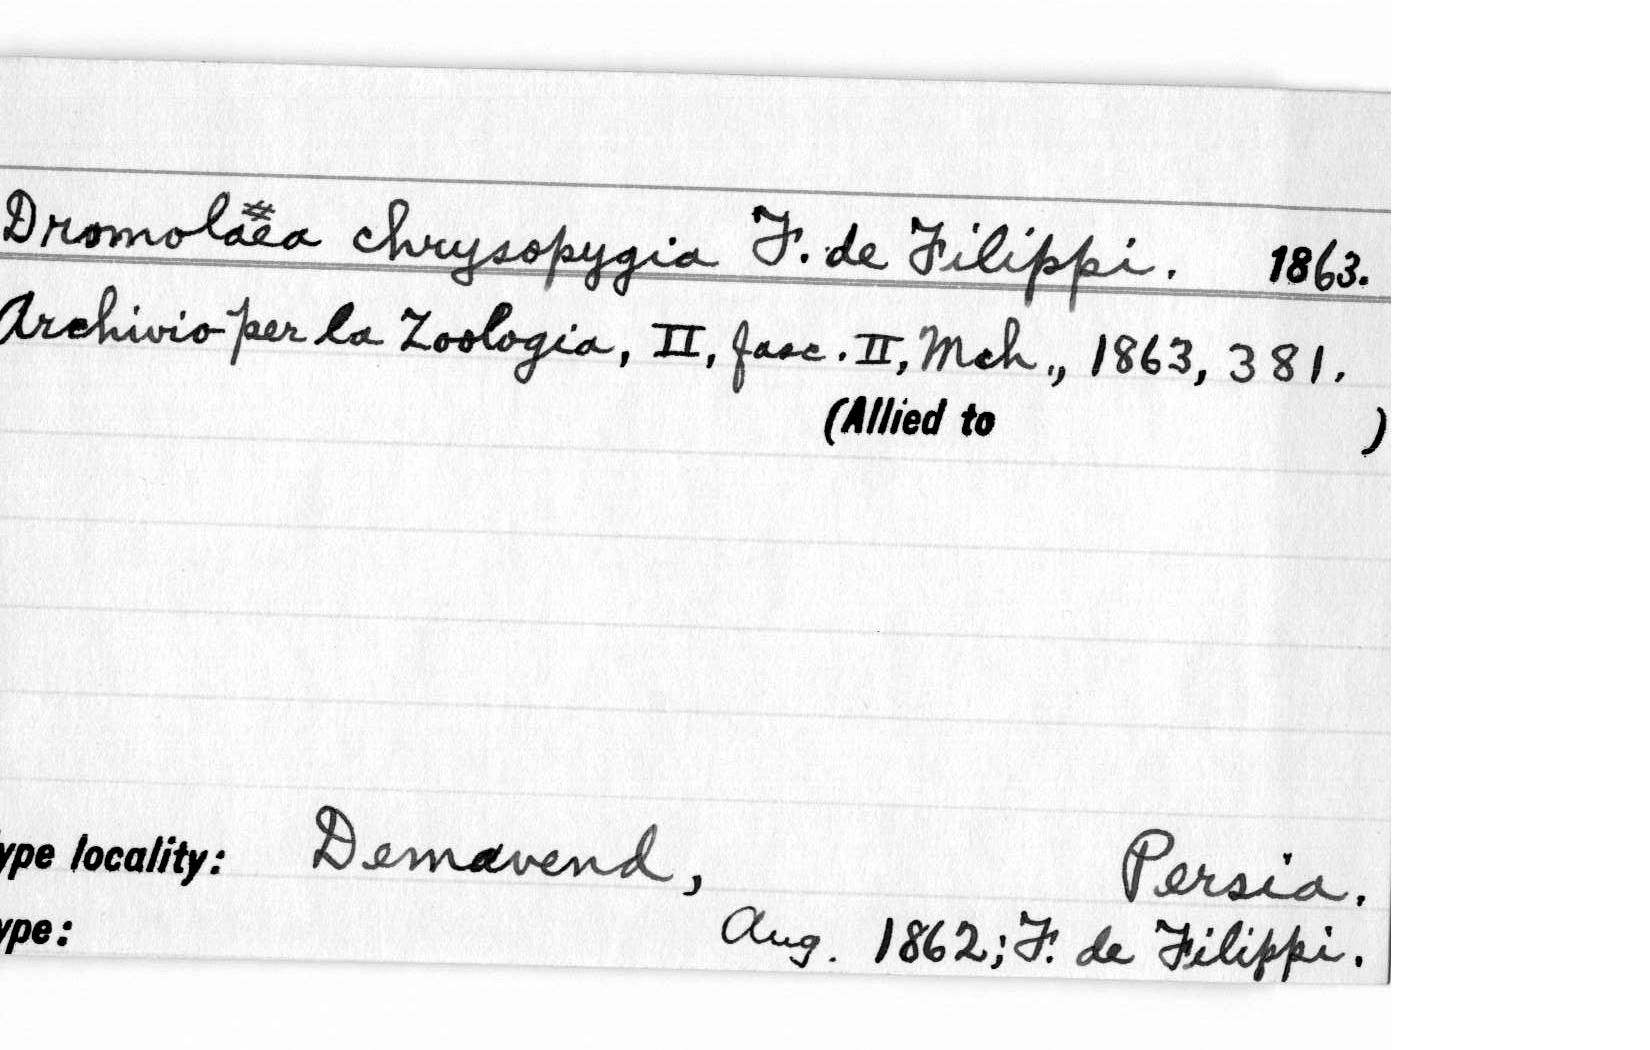 Dromolaea chrysopygia F. de Filippi. 1863.
Archivio per la Zoologia, II, fasc. II, Mch., 1863, 381.
(Allied to )
ype locality: Demavend, Persia.
ype: Aug. 1862; F. de Filippi.